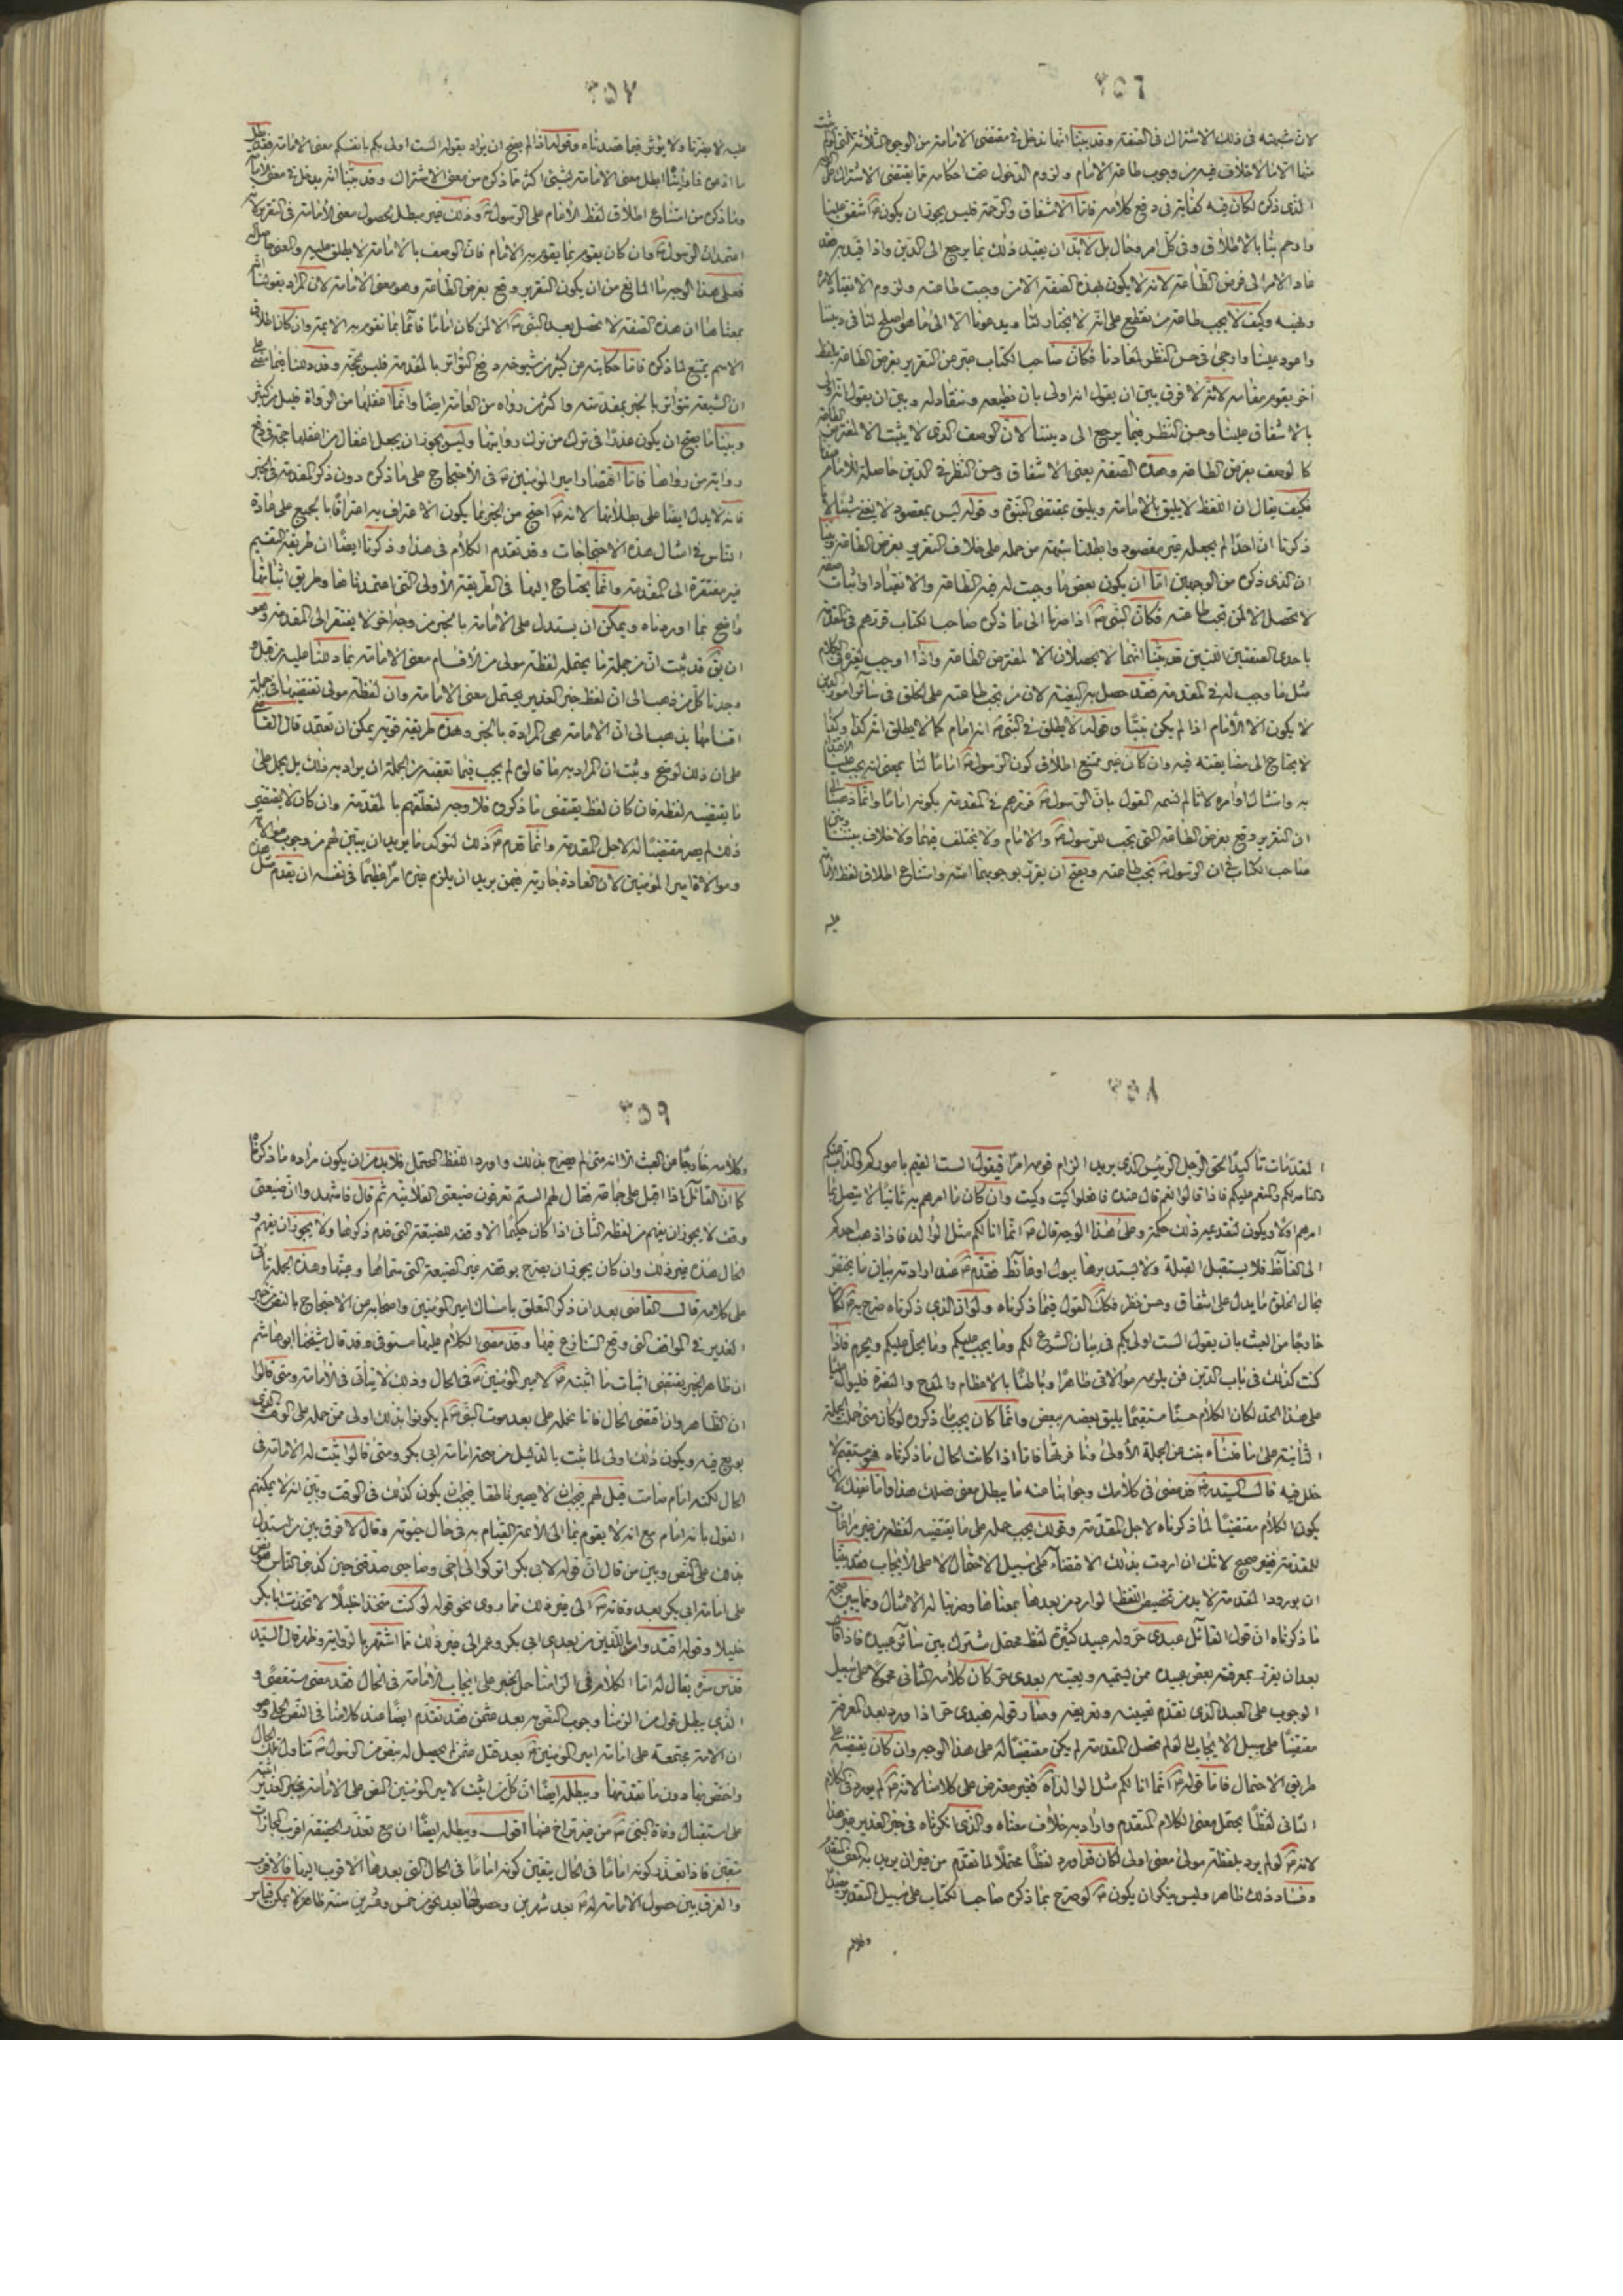 ٣٥٦
لان شبهته فى ذلك الاشتراك فى الصفة وقد بيّنا انما تدخل فى مقتضى الامامة من الوجوه الثلثة التى
منها الامثال لاخلاف فيه من وجوب طاعة الامام ولزوم الدخول تحت احكامه مما يقتضى الاشتراك
الذى ذكره لكان فيه كفاية فى دفع كلامه فامّا الاشفاق والرحمة فليس يجوز ان يكون اشفق علينا
وارحم بنا بالاطلاق وفى كل امر وحال بل لا بدّ ان يقيد ذلك بما يرجع الى الدين واذا قيد به
عاد الامر الى فرض الطاعة لانه لا يكون بهذه الصفة الا من وجبت طاعته ولزوم الانقياد لامره
ونهيه وكيف لا يجب طاعة من نقطع على انه لا يختار لنا ويدعونا الا الى ما هو اصلح لنا فى ديننا
واعود علينا وارجى فى حسن النظر لمعادنا فكان صاحب الكتاب من التقرير بفرض الطاعة بلفظ
آخر يقوم مقامه لانه لا فرق بين ان يقول انه اولى بان نطيعه وننقاد له وبين ان يقول انه اولى
بالاشفاق علينا وحسن النظر فيما يرجع الى ديننا لان الوصف الذى لا يثبت الا لمفترض الطاعة
كالوصف بفرض الطاعة وهذه الصفة يعنى الاشفاق وحسن النظر فى الدين حاصلة للامام
فكيف يقال ان اللفظ لا يليق بالامامة ويليق بمقتضى النبوة وقوله ليس بمقصود لا يغنى شيئا لانا
ذكرنا ان احدا لم يجعله غير مقصود وابطلنا شبهة من حمله على خلاف التقرير بفرض الطاعة وبينا
ان الذى ذكره من الوجهين اما ان يكون بعض ما وجبت له فيه الطاعة والانقياد او اثبات صفة
لا تحصل الا لمن تجب طاعته فكان النبى ص اذا صرنا الى ما ذكره صاحب الكتاب قررهم فى المقدمة
باحدى الصفتين اللتين قد بينا انهما لا يحصلان الا لمفترض الطاعة واذا اوجب لغيره فى الكلام
مثل ما وجب له فى المقدمة فقد حصل به البغية لان من تجب طاعته على الخلق فى سائر امور الدين
لا يكون الا الامام اذا لم يكن نبيا وقوله لا يطلق فى النبى ص انه امام كما لا يطلق انه كذا وكذا
لا يحتاج الى مضايقته فيه وان كان غير ممتنع اطلاق كون الرسول ص اماما لنا بمعنى انه يجب علينا
به وامتثال اوامره لانا لم نسمه القول بان الرسول ص قررهم فى المقدمة بكونه اماما وانما ذهبنا
ان التقرير وقع بفرض الطاعة التى تجب للرسول ص والامام ولا يختلف فيهما ولا خلاف بيننا وبين
صاحب الكتاب فى ان الرسول ص تجب طاعته ويصح ان يقرر بوجوبها امته وامتناع اطلاق لفظ الامام
عليه
٣٥٧
عليه لا يضرنا ولا يؤثر فيما قصدناه وقوله اذا لم يصح ان يراد بقوله الست اولى بكم بانفسكم معنى الامامة فقد بطل
ما ادعوه فما رأيناه ابطل معنى الامامة بشيئ اكثر مما ذكره من معنى الاشتراك وقد بينا انه يدخل فى معنى الامامة
وما ذكره من امتناع اطلاق لفظ الامام على الرسول ص وذلك غير مبطل لحصول معنى الامامة فى التقرير لانه
اعتمد ان الرسول ص وان كان يقوم بما يقوم به الامام فان الوصف بالامامة لا يطلق عليه والمعنى حاصل له
فعلى هذا الوجه ما المانع من ان يكون التقرير وقع بفرض الطاعة وهو معنى الامامة لان المراد بقولنا انه
بمعناها ان هذه الصفة لا تحصل بعد النبى ص الا لمن كان اماما قائما بما تقوم به الائمة وان كان اطلاق
الاسم يمتنع لما ذكره فاما حكايته عن كثير من شيوخه دفع التواتر بالمقدمة فليس بحجة وقد دللنا فيما مضى على
ان الشيعة تتواتر بالخبر بمقدمته واكثر من رواه من العامة ايضا وانما اغفلها من الرواة قليل من كثير
وبينا ما يصح ان يكون عذرا فى ترك من ترك روايتها وليس يجوز ان يجعل اغفال من اغفلها حجة فى دفع
رواية من رواها فاما اقتصار امير المؤمنين ع فى الاحتجاج على ما ذكره دون ذكر المقدمة فى الخبر
فانه لا يدل ايضا على بطلانها لانه ع احتج من الخبر بما يكون الاعتراف به اعترافا بالجميع على عادة
الناس فى امثال هذه الاحتجاجات وقد تقدم الكلام فى هذا وذكرنا ايضا ان طريقة التقسيم
غير مفتقرة الى المقدمة وانما يحتاج اليها فى الطريقة الاولى التى اعتمدناها وطريق اثباتها
واضح بما اوردناه ويمكن ان يستدل على الامامة بالخبر من وجه آخر لا يفتقر الى المقدمة وهو
ان يق قد ثبت ان من جملة ما يحتمله لفظة مولى من الاقسام معنى الامامة بما دللنا عليه من قبل و
وجدنا كل من ذهب الى ان لفظ خبر الغدير يحتمل معنى الامامة وان لفظة مولى تقتضيها فى جملة
اقسامها يذهب الى ان الامامة هى المرادة بالخبر وهذه طريقة قوية يمكن ان تعتمد قال القاضى
على ان ذلك لو صح وثبت ان المراد به ما قالوه لم يجب فيما تعقبه من الجملة ان يراد به ذلك بل يحمل على
ما يقتضيه لفظه فان كان لفظه يقتضى ما ذكروه فلا وجه لتعلقهم بالمقدمة وان كان لا يقتضى
ذلك لم يصر مقتضيا له لاجل المقدمة وانما قدم ص ذلك ليؤكد ما يريد ان يبين لهم من وجوب
وموالاة امير المؤمنين لان العادة جارية فيمن يريد ان يلزم غيره امرا عظيما فى نفسه ان يقدم مثل
٣٥٨
المقدمات تاكيدا لحق الرجل الرئيس الذى يريد الزام قومه امرا فيقول الست القيم باموركم والذاب عنكم
والناصر لكم والمنعم عليكم فاذا قالوا نعم قال عنده فافعلوا كيت وكيت وان كان ما امرهم به ثانيا لا يتصل بما
امرهم اولا ويكون لتقديمه ذلك حكمة وعلى هذا الوجه قال ص انما انا لكم مثل الوالد فاذا ذهب احدكم
الى الغائط فلا يستقبل القبلة ولا يستدبرها ببول او غائط فقدم ص عند ارادته بيان ما يختص
بحال الخلق ما يدل على اشفاق وحسن نظر فكك القول فيما ذكرناه ولو ان الذى ذكرناه صرح به لكان
خارجا من العبث بان يقول الست اولى بكم فى بيان الشرع لكم وما يجب عليكم وما يحل عليكم ويحرم فاذا
كنت كذلك فى باب الدين فمن يلزمه موالاتى ظاهرا وباطنا بالاعظام والمدح والنصرة فليوال عليا
على هذا الحد لكان الكلام حسنا مستقيما يليق بعضه ببعض وانما كان يجب ما ذكروه لو كان متى حمل الجملة
الثانية على ما قلناه بنت عن الجملة الاولى ومنافرتها فاما اذا كانت الحال ما ذكرناه فهو مستقيم لا
خلل فيه قال السيد ره قد مضى فى كلامك وجوابنا عنه ما يبطل معنى فصلك هذا وانما نفيك ان
يكون الكلام مقتضيا لما ذكرناه لاجل المقدمة وقولك يجب حمله على ما يقتضيه لفظه من غير مراعاة
للمقدمة فغير صحيح لانك ان اردت بذلك الاقتضاء على سبيل الاحتمال لا على الايجاب فقد بينا
ان بورود المقدمة لا بد من تخصيص اللفظ الوارد من بعدها بمعناها وضربنا له الامثال ومما يبين صحة
ما ذكرناه ان قول القائل عبدى حر وله عبيد كثيرة لفظ محتمل مشترك بين سائر عبيده فاذا قال
بعد ان يقرر بمعرفة بعض عبيده ممن يسميه ويعينه بعبدى حر كان كلامه الثانى محمولا على سبيل
الوجوب على العبد الذى تقدم تعيينه وتعريفه وصار قوله فعبدى حر اذا ورد بعد المعرفة
مقتضيا على سبيل الايجاب لما لو لم تحصل المقدمة لم يكن مقتضيا له على هذا الوجه وان كان يقتضيه على
طريق الاحتمال فاما قوله ص انما انا لكم مثل الوالد آه فغير معترض على كلامنا لانه ص لم يورد فى الكلام
الثانى لفظا يحتمل معنى الكلام المتقدم واراد به خلاف معناه والذى انكرناه فى خبر الغدير غير هذا
لانه ص لو لم يرد بلفظة مولى معنى اولى لكان قد اورد لفظا محتملا لما تقدم من غير ان يريد به المعنى المتقدم
وفساد ذلك ظاهر وليس ينكر ان يكون ص لو صرح بما ذكره صاحب الكتاب على سبيل التقدير
وكلامه
٣٥٩
وكلامه خارجا من العبث الا انه متى لم يصرح بذلك واورد اللفظ المحتمل فلا بد من ان يكون مراده ما ذكرناه
كما ان القائل اذا اقبل على جماعة فقال لهم الستم تعرفون ضيعتى الفلانية ثم قال فاشهدوا ان ضيعتى
وقف لا يجوز ان يفهم من لفظه الثانى اذا كان حكيما الا وقفه للضيعة التى قدم ذكرها ولا يجوز ان يفهم و
الحال هذه غير ذلك وان كان يجوز ان يصرح بوقفه غير الضيعة التى سماها وعينها وهذه الجملة تاتى
على كلامه قال القاضى بعد ان ذكر التعلق بامساك امير المؤمنين واصحابه من الاحتجاج بالنص
الغدير فى المواقف التى وقع التنازع فيها وقد مضى الكلام عليها مستوفى وقد قال شيخنا ابو هاشم
ان ظاهر الخبر يقتضى اثبات ما اثبته ص لامير المؤمنين ع فى الحال وذلك لا يتأتى فى الامامة ومتى قالوا
ان الظاهر وان اقتضى الحال فانا نحمله على بعد موت النبى ص لم يكونوا بذلك اولى ممن حمله على الوقت الذى
بويع فيه ويكون ذلك اولى لما ثبت بالدليل من صحة امامة ابى بكر ومتى قالوا ثبت له الامامة فى
الحال لكنه امام صامت قيل لهم فيجب ان لا يصير ناطقا فيجب ان يكون كذلك فى الوقت وبين انه لا يمكنهم
القول بانه امام مع انه لا يقوم بما الى الائمة القيام به فى حال حيوته وقال لا فرق بين من استدل
بذلك على النص وبين من قال ان قوله لابى بكر اتركوا لى اخى وصاحبى صدقنى حين كذبنى الناس نص
على امامة ابى بكر بعد وفاته ص الى غير ذلك مما روى نحو قوله لو كنت متخذا خليلا لاتخذت ابا بكر
خليلا وقوله اقتدوا باللذين من بعدى ابى بكر وعمر الى غير ذلك مما اشتهر بالرواية وظهر قال السيد
قدس سره يقال له اما الكلام فى الزامنا حمل الخبر على ايجاب الامامة فى الحال فقد مضى مستقصى و
الذى يبطل قول من الزمنا وجوب النص به بعد عثمن فقد تقدم ايضا عند كلامنا فى النص الجلى وهو
ان الامة مجتمعة على امامة امير المؤمنين ع بعد قتل عثمن لم يحصل له بنص من الرسول ص تناول تلك الحال
واختص بها دون ما تقدمها ويبطله ايضا ان كل من اثبت لامير المؤمنين النص على الامامة بخبر الغدير
على استقبال وفاة النبى ص من غير تراخ عنها اقول ويبطله ايضا ان مع تعذر الحقيقة اقرب المجازات
متعين فاذا تعذر كونه اماما فى الحال يتعين كونه اماما فى الحال التى بعدها الاقرب اليها فالاقرب
والفرق بين حصول الامامة له ع بعد شهرين وحصولها بعد نحو من خمس وعشرين سنة ظاهر